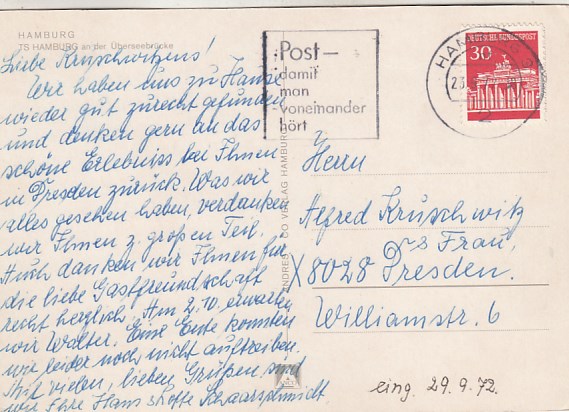 HAMBURG
TS HAMBURG an der Überseebrücke
Liebe Kruschwitzens!
Wir haben uns zu Hause
wieder gut zurecht gefunden
und denken gern an das
schöne Erlebniss bei Ihnen
in Dresden zurück. Was wir
alles gesehen haben, verdanken
wir Ihnen z. großen Teil.
Auch danken wir Ihnen für
die liebe Gastfreundschaft
recht herzlich. Am 2.10. erwarten
wir Walter. Eine Ente konnten
wir leider noch nicht auftreiben.
Mit vielen, lieben Grüßen sind
wir Ihre Hans Lotte Schaarschmidt
Post –
damit
man
voneinander
hört
DEUTSCHE BUNDESPOST
30
HAMBURG
2
CO VERLAG HAMBURG
Herrn
Alfred Kruschwitz
u. Frau,
X 8028 Dresden.
Williamstr. 6
eing. 29.9.72.